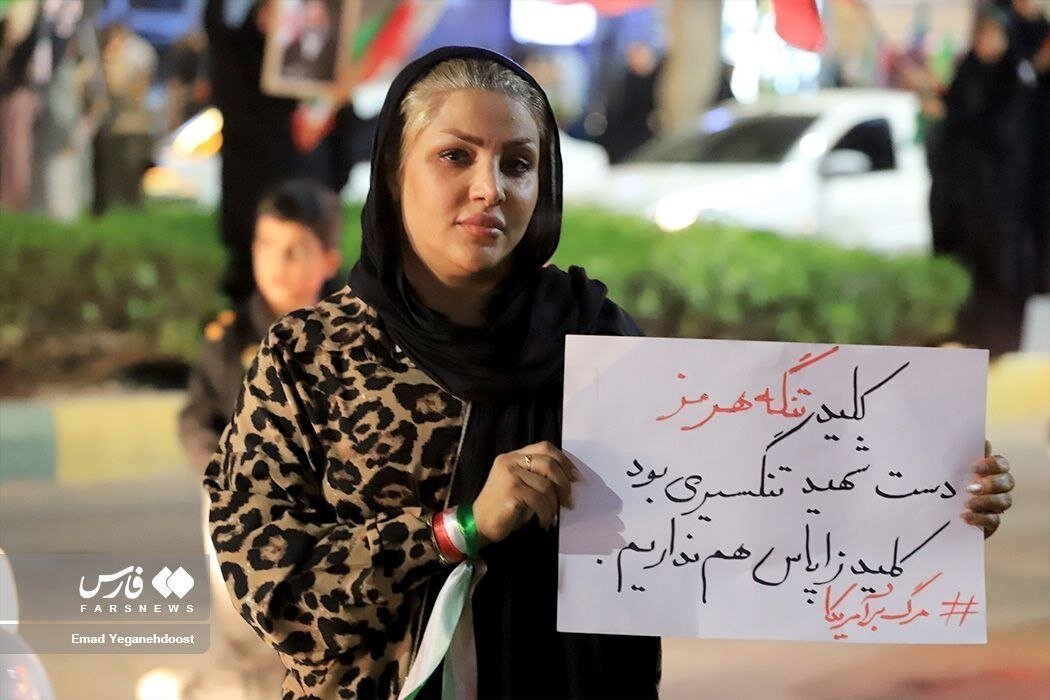 کلید تنگه هرمز
دست شهید تنگسیری بود
کلید زاپاس هم نداریم.
# مرگ بر آمریکا
فارس
FARSNEWS
Emad Yeganehdoost